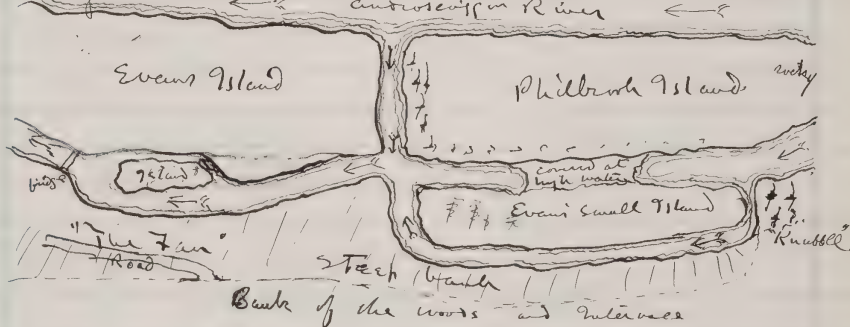 Androscoggin River
Evans Island
Philbrook Island
rocky
Island
covered at
high water
bridge
Evans' small Island
"Knubble"
"The Fan"
Road
Steep bank
Bank of the woods and Intervale